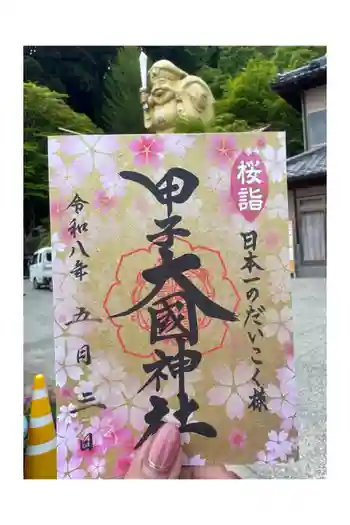 桜詣
日本一のだいこく様
甲子大國神社
令和八年 五月三日